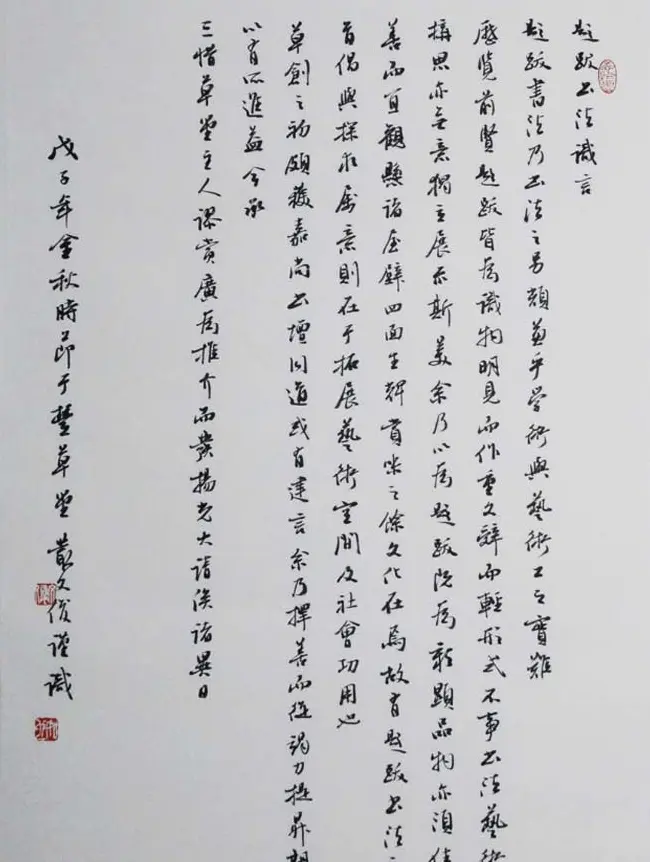 題跋书法識言
題跋書法乃书法之另類兼乎學術與藝術工之實難
歷覽前賢題跋皆為識物明見而作重文辭而輕形式不事书法藝術
構思亦無意獨立展示斯美余乃以為題跋既為彰顯品物亦須佳
善而宜觀懸諸屋壁四面生輝賞味之餘文化在焉故有題跋书法
首倡與探求屬意則在于拓展藝術空間及社會功用也
草創之初頗獲嘉尚书壇同道或有建言余乃擇善而從竭力提昇期
以有所進益今承
三惜草堂主人謬賞廣為推介而發揚光大請俟諸異日
戊子年金秋時節于豐草堂叢文俊謹識